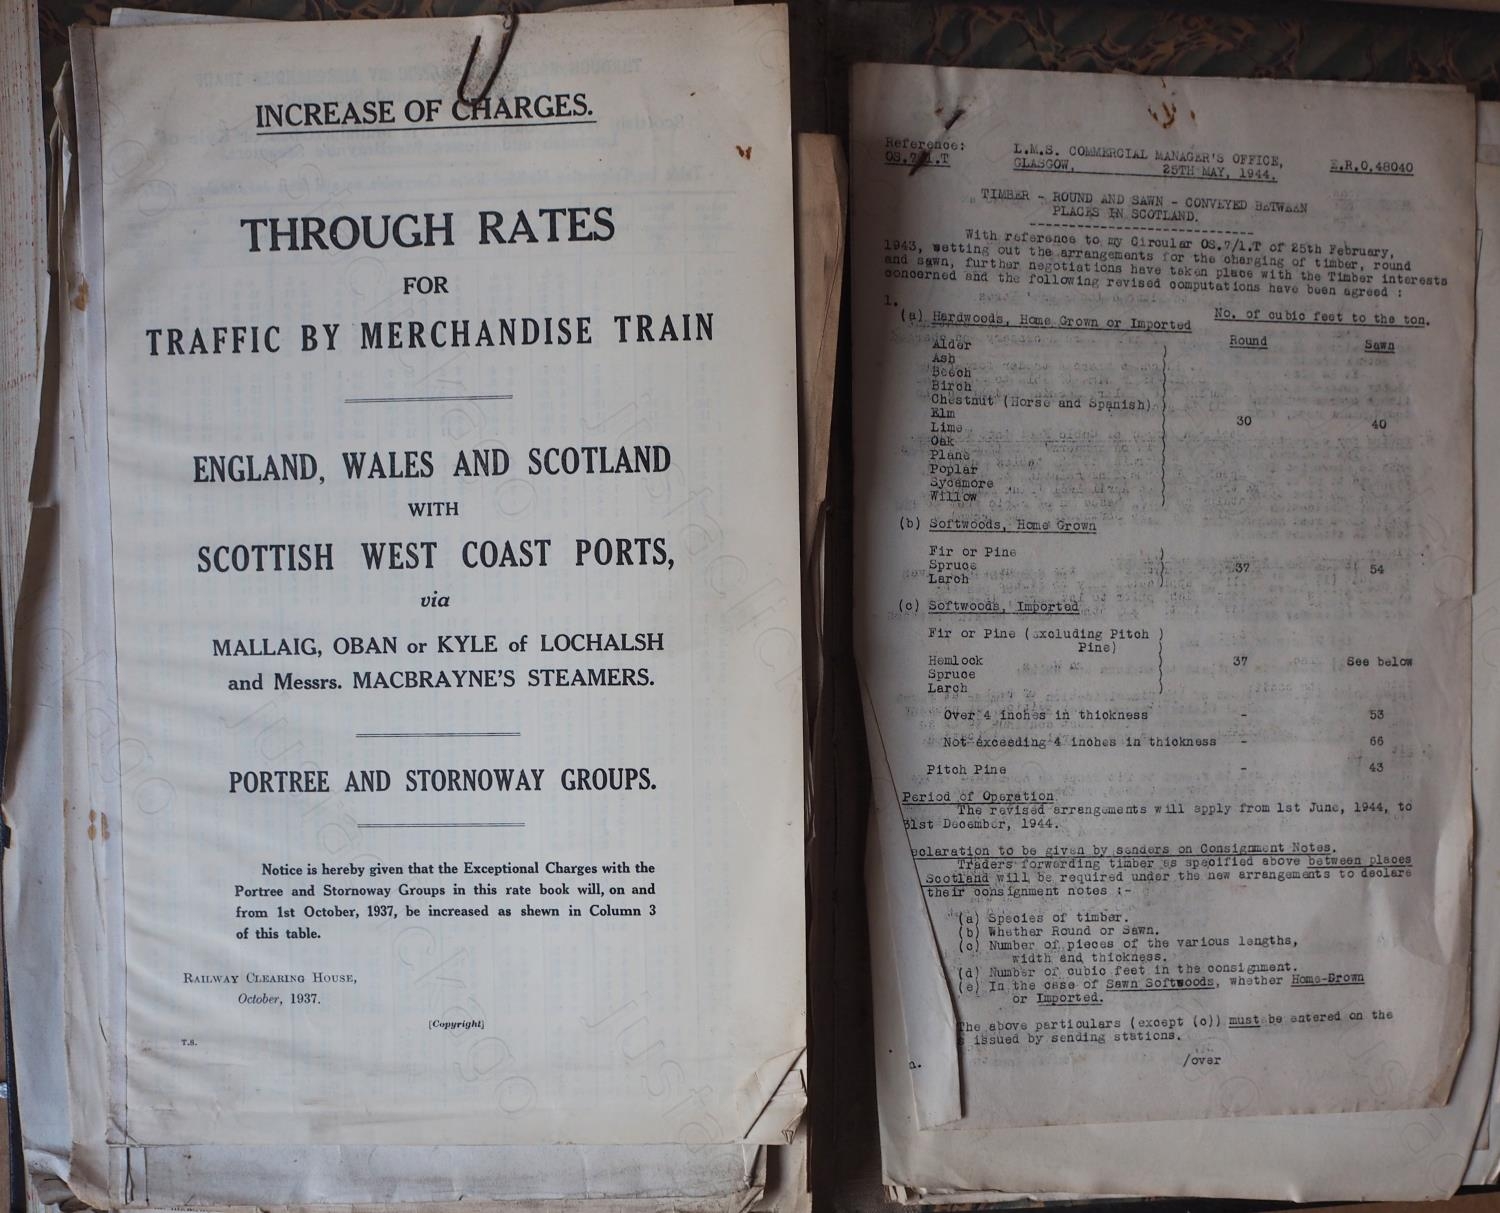 INCREASE OF CHARGES.
THROUGH RATES
FOR
TRAFFIC BY MERCHANDISE TRAIN
ENGLAND, WALES AND SCOTLAND
WITH
SCOTTISH WEST COAST PORTS,
via
MALLAIG, OBAN or KYLE of LOCHALSH
and Messrs. MACBRAYNE'S STEAMERS.
PORTREE AND STORNOWAY GROUPS.
Notice is hereby given that the Exceptional Charges with the
Portree and Stornoway Groups in this rate book will, on and
from 1st October, 1937, be increased as shewn in Column 3
of this table.
RAILWAY CLEARING HOUSE,
October, 1937.
[Copyright]
T.S.
Reference:
OS.7/1.T
L.M.S. COMMERCIAL MANAGER'S OFFICE,
GLASGOW, 25TH MAY, 1944.
E.R.O.48040
TIMBER - ROUND AND SAWN - CONVEYED BETWEEN
PLACES IN SCOTLAND.
With reference to my Circular OS.7/1.T of 25th February,
1943, setting out the arrangements for the charging of timber, round
and sawn, further negotiations have taken place with the Timber interests
concerned and the following revised computations have been agreed :
1.
(a) Hardwoods, Home Grown or Imported No. of cubic feet to the ton.
Round Sawn
Alder
Ash
Beech
Birch
Chestnut (Horse and Spanish)
Elm
Lime 30 40
Oak
Plane
Poplar
Sycamore
Willow
(b) Softwoods, Home Grown
Fir or Pine
Spruce 37 54
Larch
(c) Softwoods, Imported
Fir or Pine (excluding Pitch
Pine)
Hemlock 37 See below
Spruce
Larch
Over 4 inches in thickness - 53
Not exceeding 4 inches in thickness - 66
Pitch Pine - 43
Period of Operation
The revised arrangements will apply from 1st June, 1944, to
31st December, 1944.
eclaration to be given by senders on Consignment Notes.
Traders forwarding timber as specified above between places
Scotland will be required under the new arrangements to declare
their consignment notes :-
(a) Species of timber.
(b) Whether Round or Sawn.
(c) Number of pieces of the various lengths,
width and thickness.
(d) Number of cubic feet in the consignment.
(e) In the case of Sawn Softwoods, whether Home-Grown
or Imported.
The above particulars (except (c)) must be entered on the
s issued by sending stations.
/over